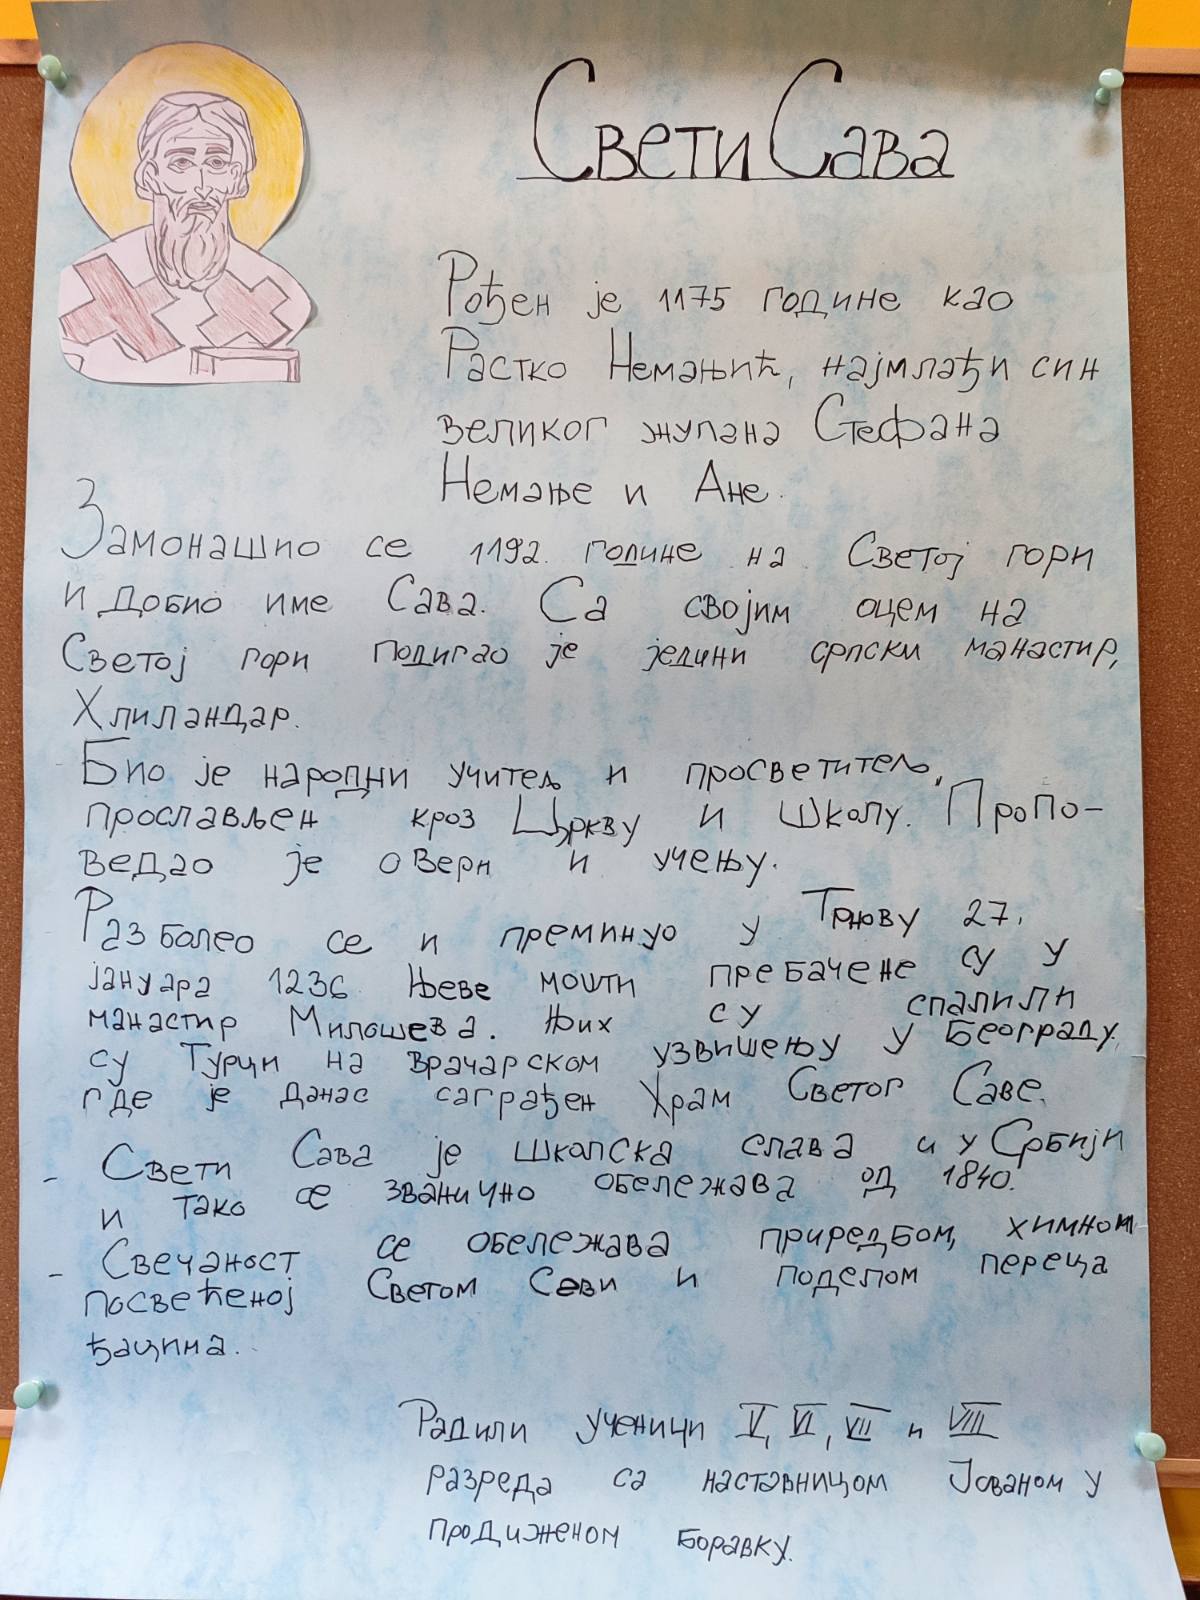 Свети Сава
Рођен је 1175 године као
Растко Немањић, најмлађи син
великог жупана Стефана
Немање и Ане.
Замонашио се 1192. године на Светој гори
и добио име Сава. Са својим оцем на
Светој гори подигао је једини српски манастир,
Хлиландар.
Био је народни учитељ и просветитељ,
прослављен кроз Цркву и школу. Пропо-
ведао је о Вери и учењу.
Разболео се и преминуо у Трнову 27.
јануара 1236 Њеве мошти пребачене су у
манастир Милошева. Њих су спалили
су Турци на Врачарском узвишењу у Београду,
где је данас саграђен Храм Светог Саве.
- Свети Сава је школска слава и у Србији
и тако се званично обележава од 1840.
- Свечаност се обележава приредбом, химном
посвећеној Светом Сави и поделом переца
ђацима.
Радили ученици V, VI, VII и VIII
разреда са наставницом Јованом у
продиженом боравку.